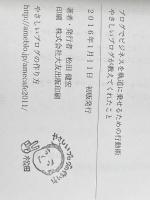 ブログでビジネスを軌道に乗せるための行動術
やさしいブログが教えてくれたこと
2016年1月11日 初版発行
著者・発行者 松田 健宏
印刷 株式会社大友出版印刷
やさしいブログの作り方
http://ameblo.jp/amecafe2011/
やさしいブログの作り方
松田